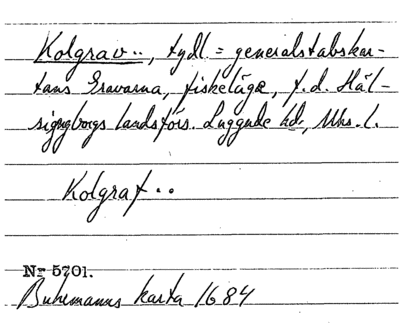 Kolgrav··, tydl. = generalstabskar-
tans Gravarna, fiskeläge, f.d. Häl-
singborgs landsförs. Luggude hd., Mhs. l.
Kolgraf··
No 5701.
Buhrmanns karta 1684